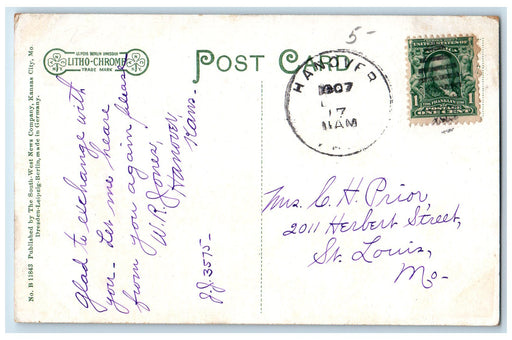 POST CARD
LEIPZIG BERLIN DRESDEN
LITHO-CHROME
TRADE MARK
No. B 11843 Published by The South-West News Company, Kansas City, Mo.
Dresden-Leipzig-Berlin, made in Germany.
Glad to exchange with
you - Let me heare
from you again please
W. R. Jones,
Hanover,
Kans.
J.J. 3575-
5-
HANOVER
1907
17
11AM
UNITED STATES OF
1 1
FRANKLIN
POSTAGE
ONE CENT
Mrs. C. H. Prior,
2011 Herbert Street,
St. Louis,
Mo-